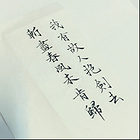 我有故人抱劍去
斬盡春風未肯歸